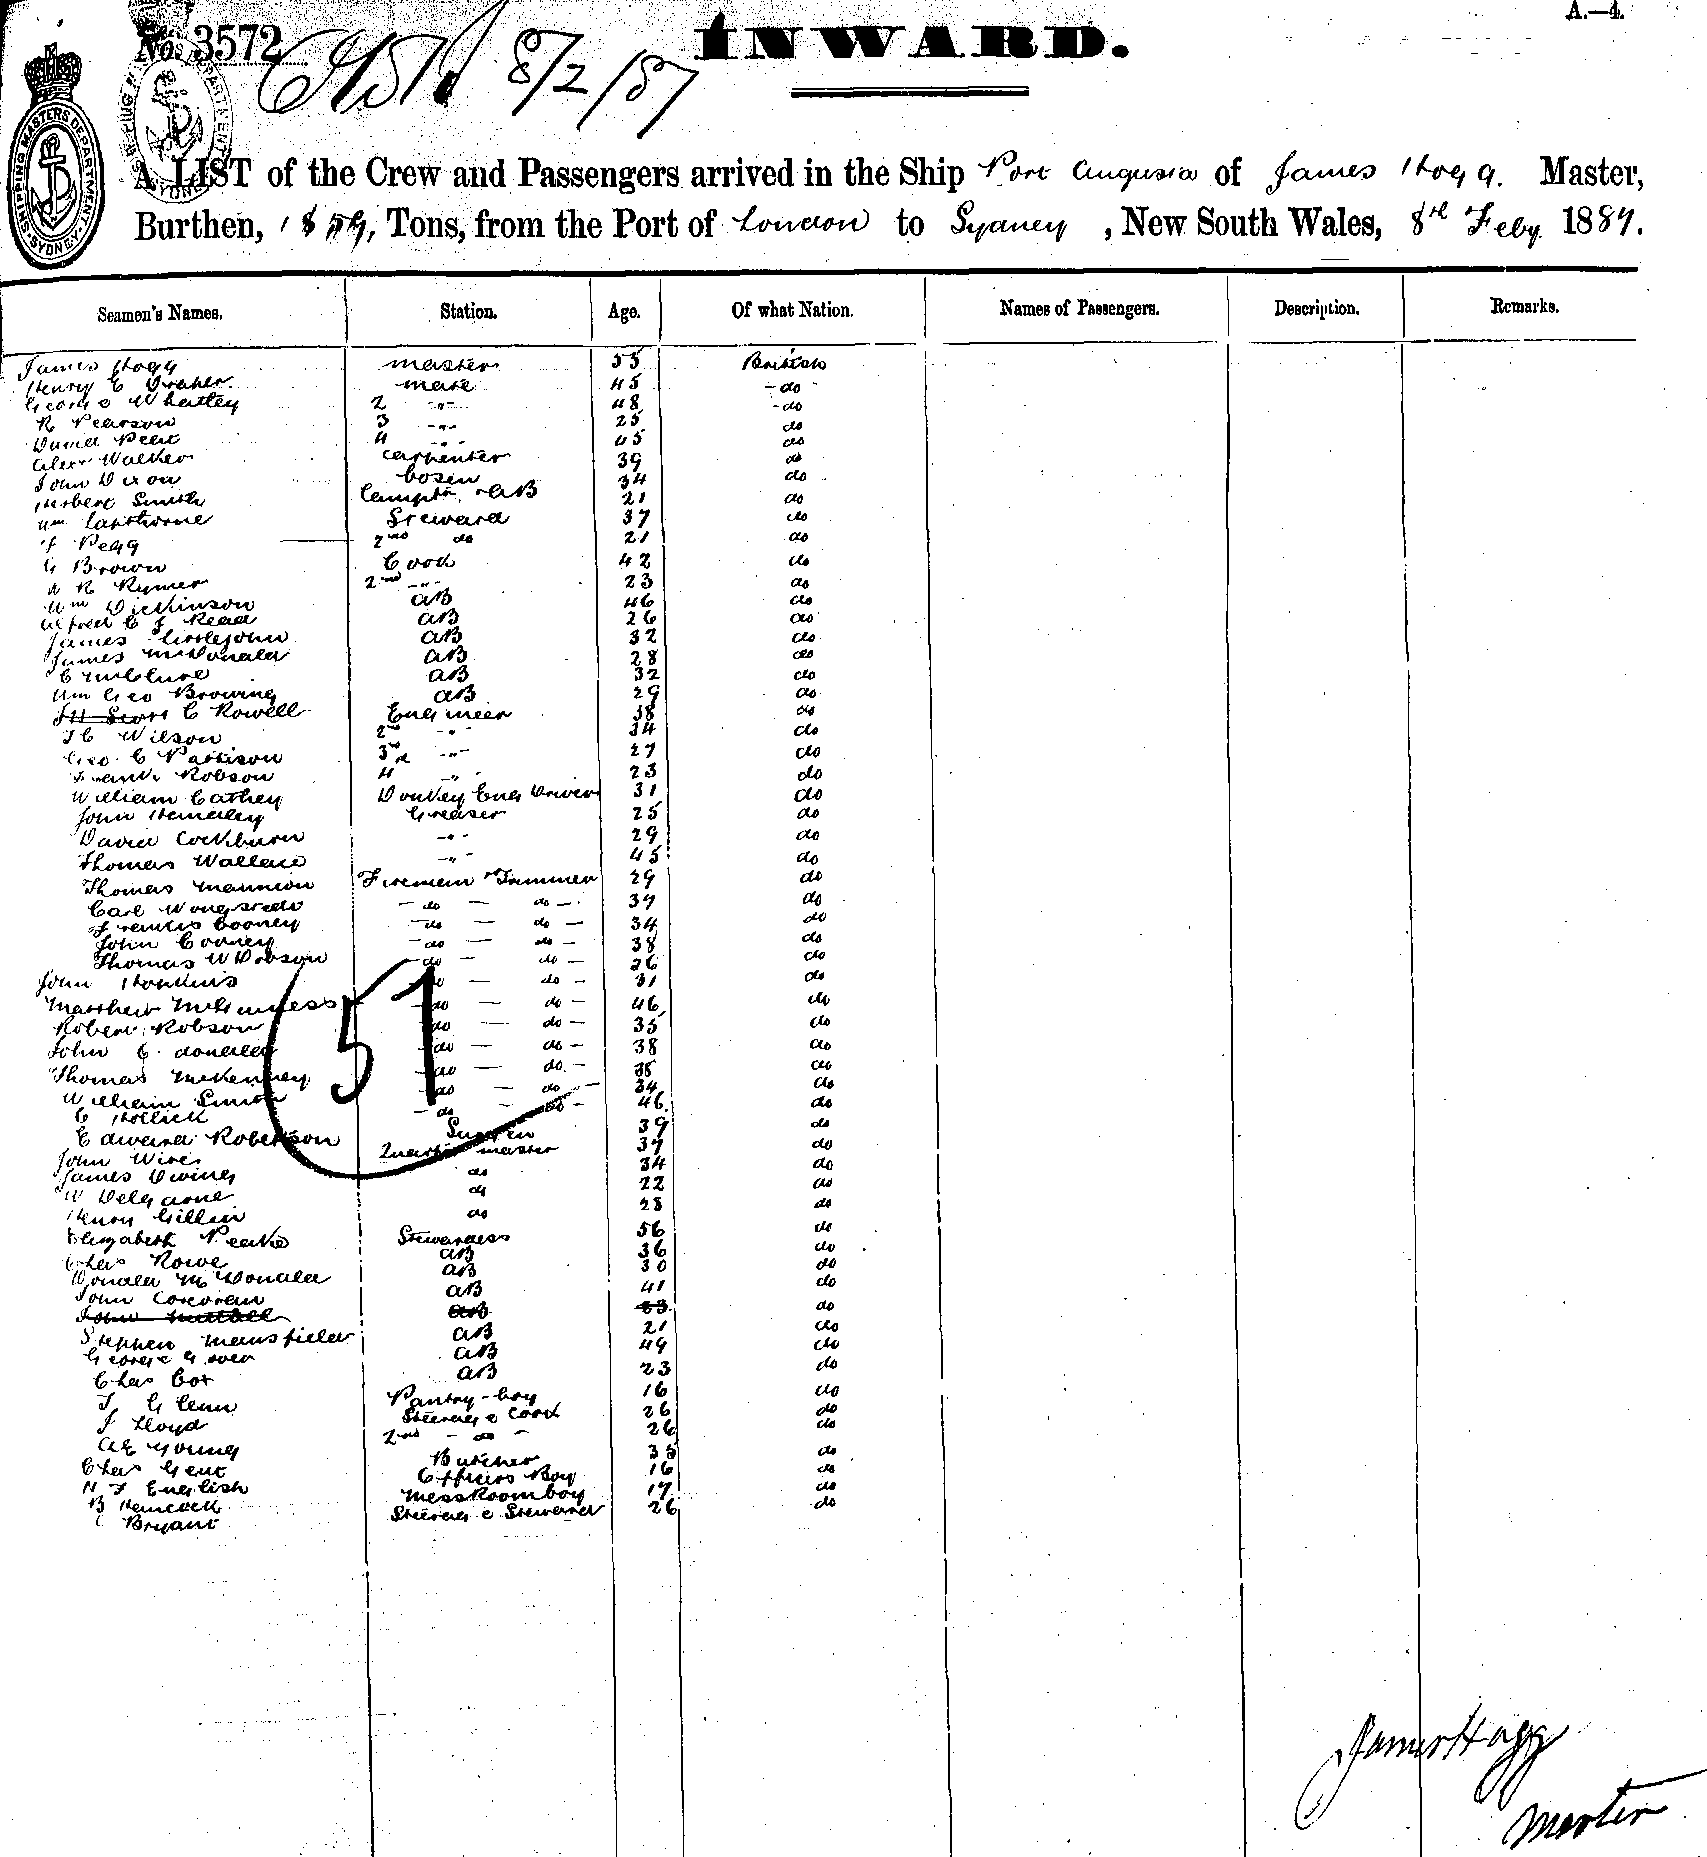 A.—4.
No. 3572
8/2/87
INWARD.
SHIPPING MASTERS DEPARTMENT SYDNEY
A LIST of the Crew and Passengers arrived in the Ship Port Augusta of James Hogg. Master,
Burthen, Tons, from the Port of London to Sydney, New South Wales, 8th Feby 1887.
Seamen's Names. Station. Age. Of what Nation. Names of Passengers. Description. Remarks.
James Hogg master 55 British
Henry C mate 45 do
George Whatley 2 -"- 48 do
R Pearson 3 -"- 25 do
David 4 -"- 45 do
Alexr Walker carpenter 39 do
John Dixon bosen 34 do
Herbert Smith AB 21 do
Wm Lapthorne Steward 37 do
Pegg 2nd do 21 do
G Brown Cook 42 do
R Rymer 2nd -"- 23 do
Wm Dickinson AB 46 do
Alfred C J Read AB 26 do
James Littlejohn AB 32 do
James McDonald AB 28 do
C McClure AB 32 do
Wm Geo Browning AB 29 do
C Rowell Engineer 38 do
J C Wilson 2nd -"- 34 do
Geo C Pattison 3rd -"- 27 do
Frank Robson 4 -"- 23 do
William Cathey Donkey Eng Driver 31 do
John Hemsley Greaser 25 do
David Cockburn -"- 29 do
Thomas Wallace -"- 45 do
Thomas Mannion Fireman & Trimmer 29 do
Carl - do - do - 37 do
Francis Cooney - do - do - 34 do
John Cooney - do - do - 38 do
Thomas W Dobson - do - do - 26 do
John Hopkins do - do - 31 do
Matthew McGuiness do - do - 46 do
Robert Robson do - do - 35 do
John C. do - do - 38 do
Thomas McKenney do - do - 38 do
William Simon do - do - 34 do
C Hollick - do - do - 46 do
51
Edward Robertson Surgeon 39 do
John Wires Quarter master 37 do
James Ewing do 34 do
W Delgarne do 22 do
Henry Gillin do 28 do
Elizabeth Peake Stewardess 56 do
Chas Rowe AB 36 do
Donald McDonald AB 30 do
John Corcoran AB 41 do
John AB 33 do
Stephen Mansfield AB 21 do
George Glover AB 49 do
Chas Cox AB 23 do
J Glenn Pantry-boy 16 do
J Lloyd Steerage Cook 26 do
AE Young 2nd - do - 26 do
Chas Gent Butcher 35 do
H J English Officers Boy 16 do
B Hancock Messroom boy 17 do
Bryant Steerage Steward 26 do
James Hogg
Master